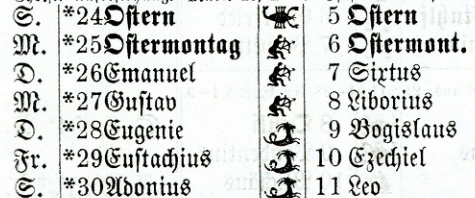 S. *24 Ostern 5 Ostern
M. *25 Ostermontag 6 Ostermont.
D. *26 Emanuel 7 Sixtus
M. *27 Gustav 8 Liborius
D. *28 Eugenie 9 Bogislaus
Fr. *29 Eustachius 10 Ezechiel
S. *30 Adonius 11 Leo